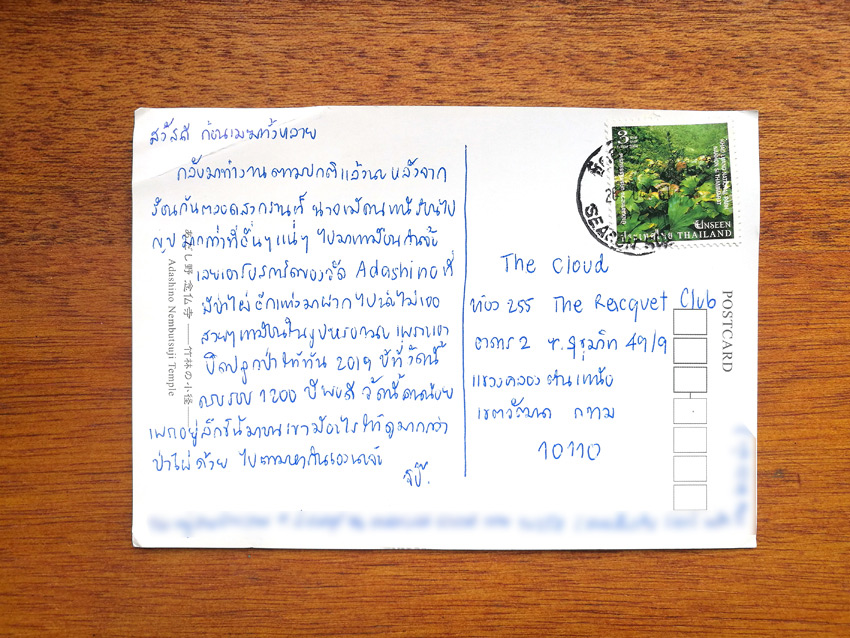 สวัสดี ก้อนเมฆทั้งหลาย
กลับมาทำงานตามปกติแล้วนะ หลังจาก
ร้อนกันตลอดสงกรานต์
ไปมาเหมือนกันจ้ะ
เลยเอาโปสการ์ดของวัด Adashino ที่
มีป่าไผ่อีกแห่งมาฝาก ไปนี่ไม่เจอ
สวยๆเหมือนในรูปหรอกนะ เพราะเขา
ปิดปลูกป่าให้ทัน 2019 ปีที่วัดนี้
ครบรอบ 1200 ปีพอดี วัดนี้คนน้อย
เพราะอยู่ลึกขึ้นมาบนเขา มีอะไรให้ดูมากกว่า
ป่าไผ่ด้วย ไปตามหากันเองนะจ๊ะ
จิ๊บ.
あだし野 念仏寺 ── 竹林の小径
Adashino Nembutsuji Temple
3
UNSEEN
ประเทศไทย THAILAND
The Cloud
ห้อง 255 The Racquet Club
อาคาร 2 ซ.สุขุมวิท 49/9
แขวงคลองตันเหนือ
เขตวัฒนา กทม
10110
POSTCARD